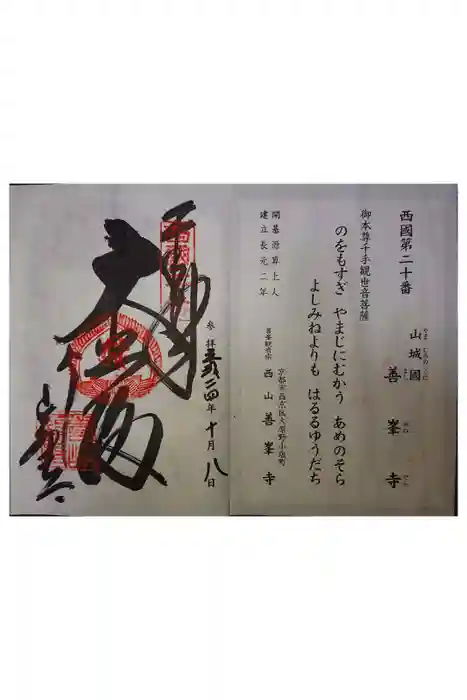 西國第二十番
山城國 善峯寺
やましろのくに よしみねでら
御本尊千手観世音菩薩
のをもすぎ やまじにむかう あめのそら
よしみねよりも はるるゆうだち
開基源算上人
建立長元二年
京都市西京区大原野小塩町
善峯観音宗 西山善峯寺
参拝 平成二四年十月八日
大悲閣